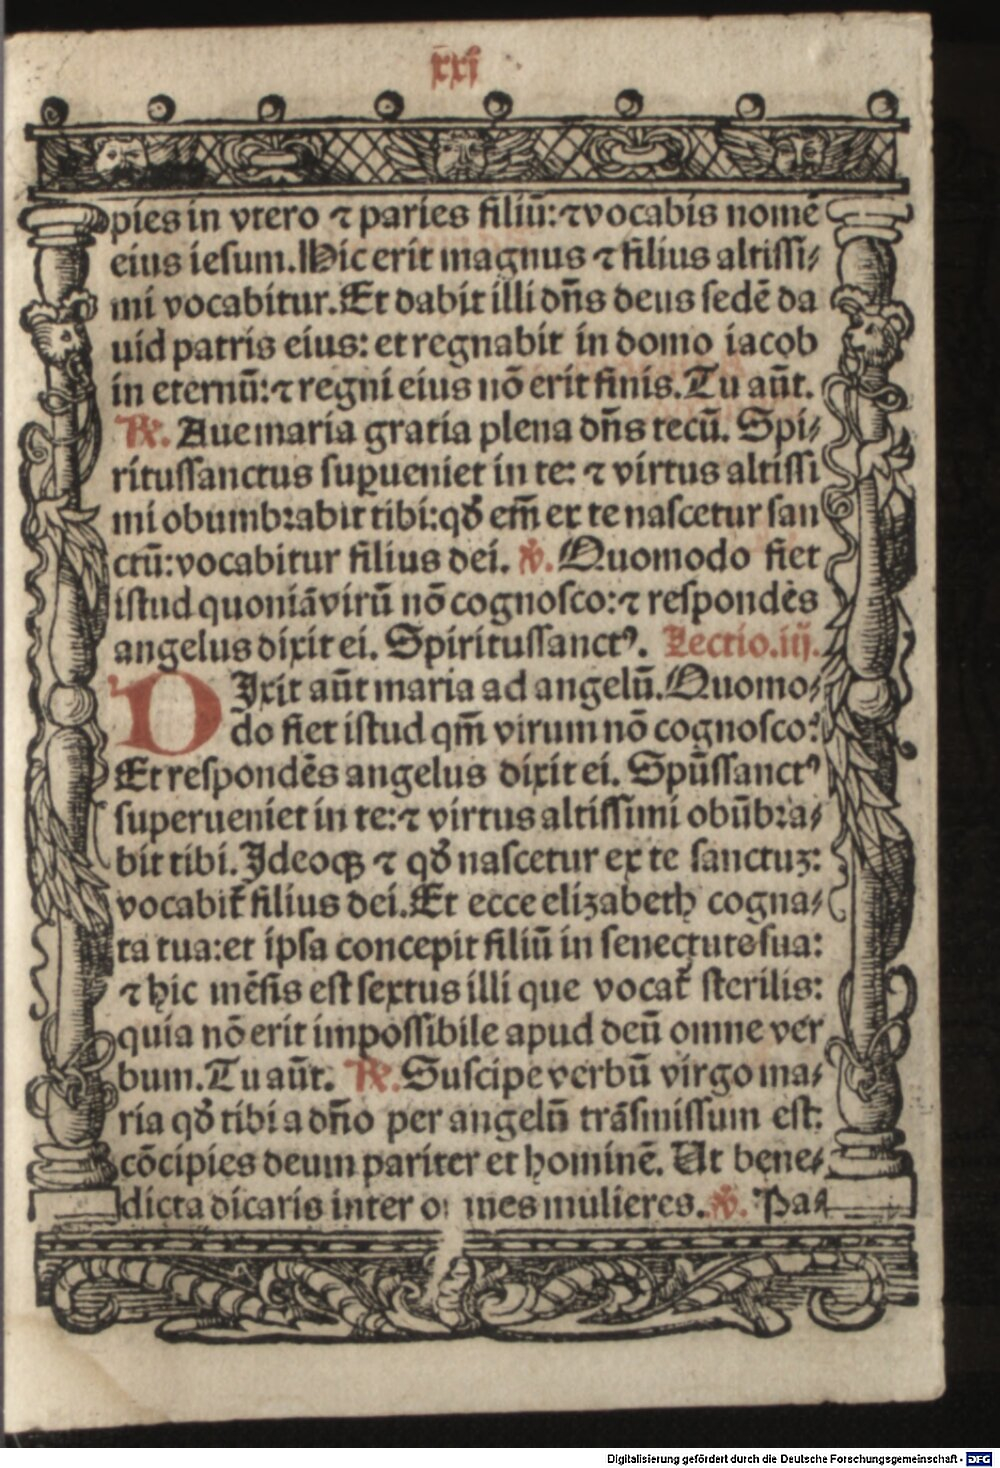 xxi
pies in vtero ⁊ paries filiū: ⁊ vocabis nomē
eius iesum. Hic erit magnus ⁊ filius altissi⸗
mi vocabitur. Et dabit illi dn̄s deus sedē da
uid patris eius: et regnabit in domo iacob
in eternū: ⁊ regni eius nō erit finis. Tu aūt.
℞. Aue maria gratia plena dn̄s tecū. Spi⸗
ritussanctus suꝑueniet in te: ⁊ virtus altissi
mi obumbꝛabit tibi: qđ em̄ ex te nascetur san
ctū: vocabitur filius dei. ℣. Quomodo fiet
istud quoniā virū nō cognosco: ⁊ respondēs
angelus dixit ei. Spiritussanctꝰ. Lectio .iij.
DIxit aūt maria ad angelū. Quomo⸗
do fiet istud qm̄ virum nō cognosco:
Et respondēs angelus dixit ei. Spūssanctꝰ
superueniet in te: ⁊ virtus altissimi obūbꝛa⸗
bit tibi. Ideoqꝫ ⁊ qđ nascetur ex te sanctuꝫ:
vocabit̄ filius dei. Et ecce elizabeth cogna⸗
ta tua: et ipsa concepit filiū in senectute sua:
⁊ hic mēsis est sextus illi que vocat̄ sterilis:
quia nō erit impossibile apud deū omne ver
bum. Tu aūt. ℞. Suscipe verbū virgo ma⸗
ria qđ tibi a dn̄o per angelū trāsmissum est:
cōcipies deum pariter et hominē. Ut bene⸗
dicta dicaris inter o mes mulieres. ℣. Pa⸗
Digitalisierung gefördert durch die Deutsche Forschungsgemeinschaft - DFG